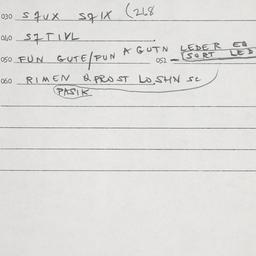 030 S7UX S7IX (218
040 S7TIVL
050 FUN GUTE/PUN A GUTN 052 LEDER EB
SORT LED
060 RIMEN & PROST LOSHN SC
PASIK